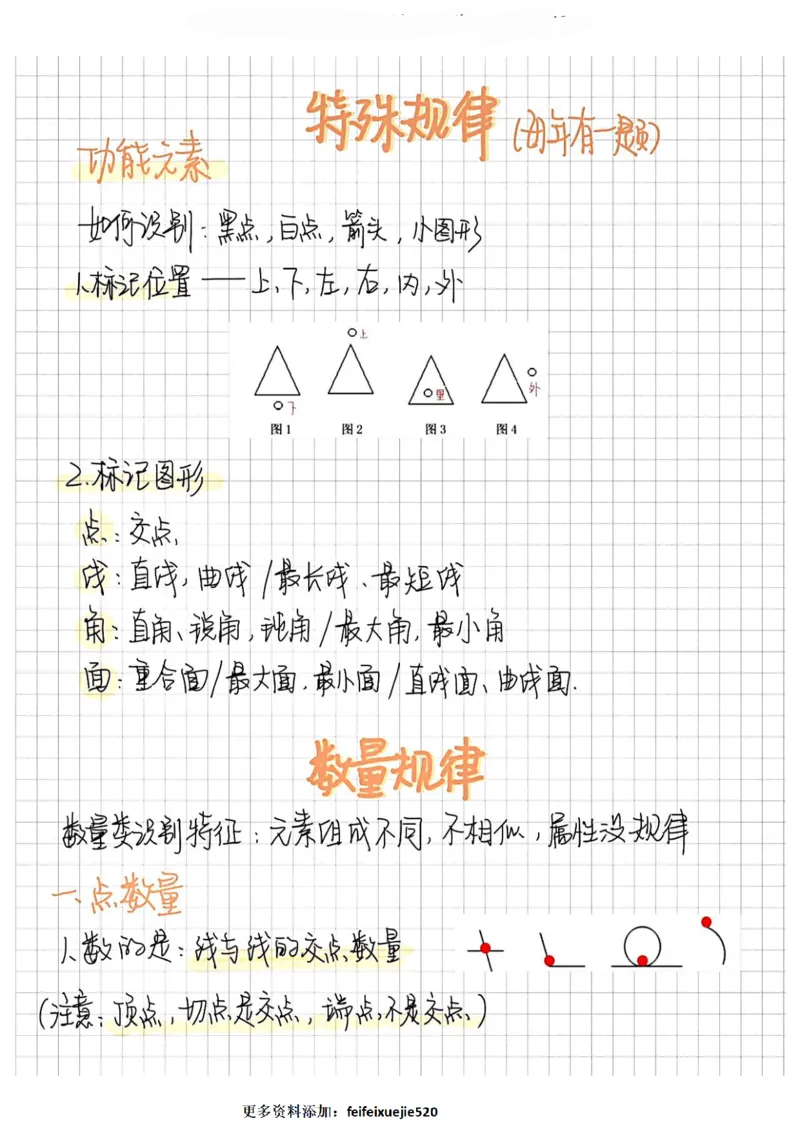 特殊规律(每年有一题)
功能元素
如何识别：黑点，白点，箭头，小图形
1.标记位置——上、下，左，右，内，外
上
下
里
外
图1 图2 图3 图4
2.标记图形
点：交点，
线：直线，曲线/最长线、最短线
角：直角、锐角，钝角/最大角，最小角
面：重合面/最大面，最小面/直线面、曲线面.
数量规律
数量类识别特征：元素组成不同，不相似，属性没规律
一、点数量
1.数的是：线与线的交点数量
(注意：顶点，切点是交点，端点不是交点、)
更多资料添加：feifeixuejie520